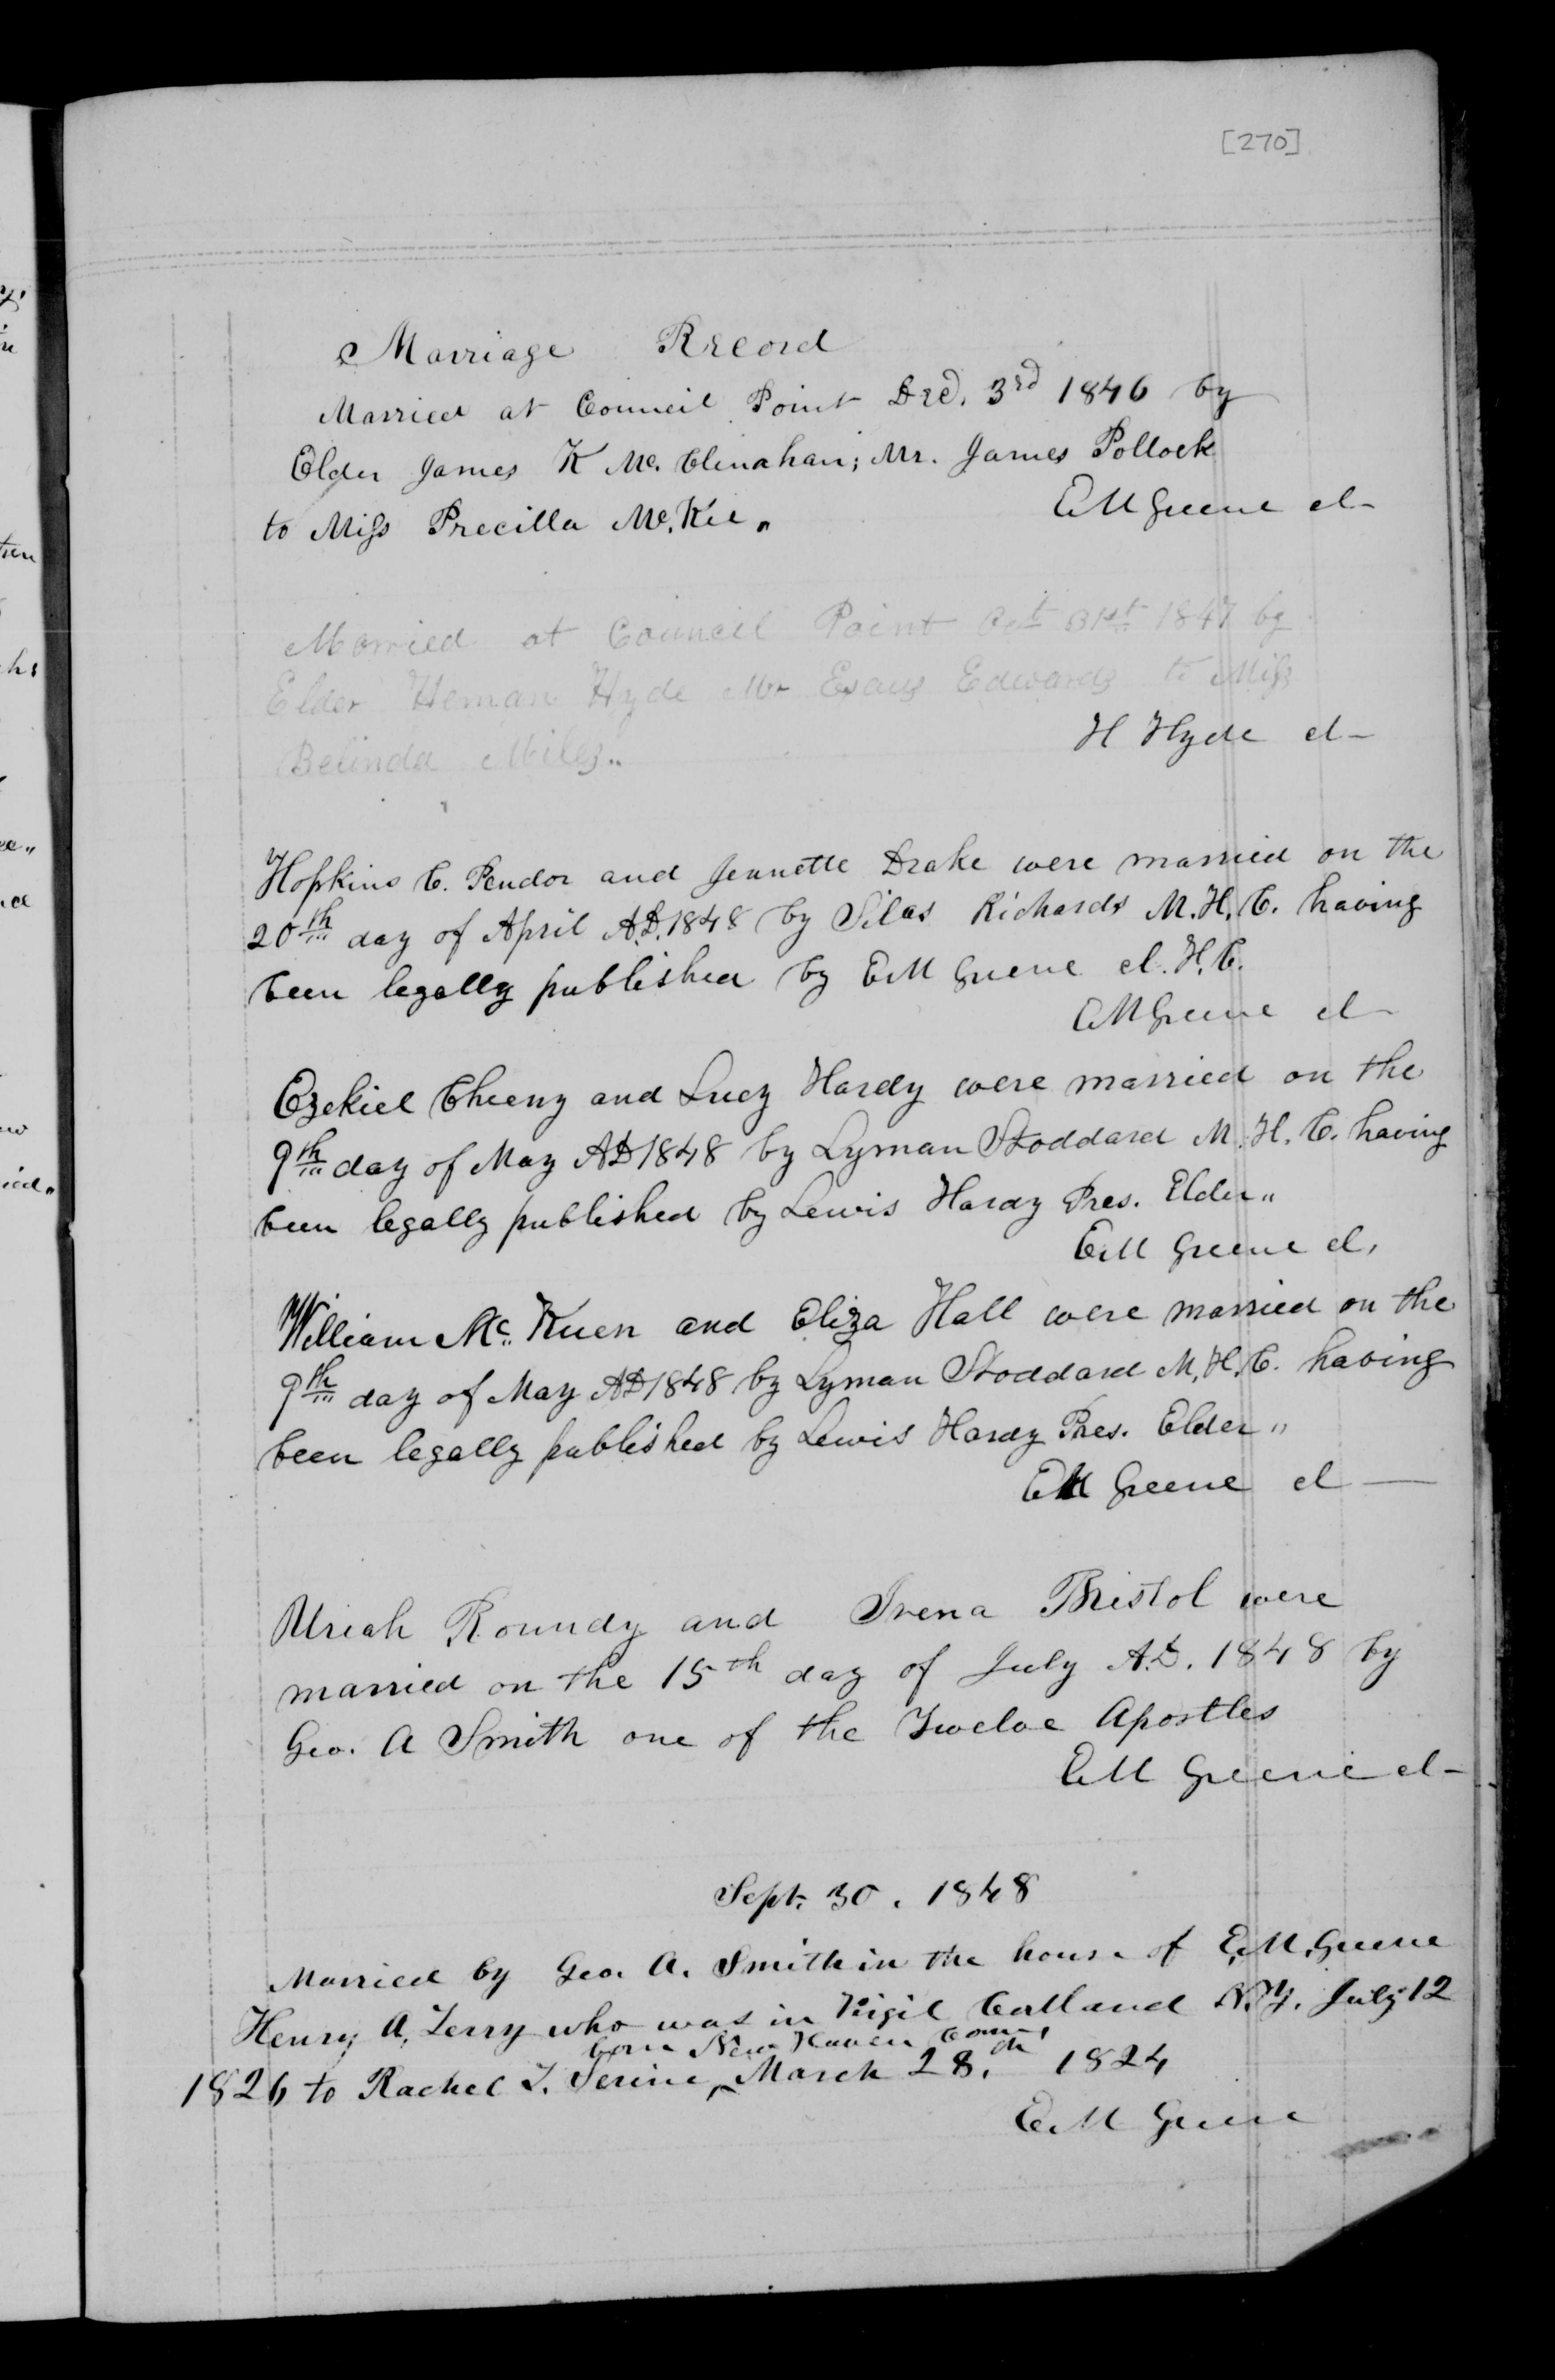 [270]
Marriage Record
Married at Council Point Dec. 3rd 1846 by
Elder James K Mc. Clenahan; Mr. James Pollock
to Miss Precilla Mc. Kee.
E M Greene cl-
Married at Council Point Oct 31st 1847 by
Elder Heman Hyde Mr Esaus Edwards to Miss
Belinda Miles..
H Hyde cl-
Hopkins C. Pendor and Jennette Drake were married on the
20th day of April A.D. 1848 by Silas Richards M.H.C. having
been legally published by E M Greene cl. H.C.
E M Greene cl-
Ezekiel Cheeny and Lucy Hardy were married on the
9th day of May AD 1848 by Lyman Stoddard M.H.C. having
been legally published by Lewis Hardy Pres. Elder "
E M Greene cl.
William Mc. Kuen and Eliza Hall were married on the
9th day of May AD 1848 by Lyman Stoddard M.H.C. having
been legally published by Lewis Hardy Pres. Elder "
E M Greene cl-
Uriah Roundy and Irena Bristol were
married on the 15th day of July A.D. 1848 by
Geo. A Smith one of the Twelve Apostles
E M Greene cl-
Sept. 30. 1848
Married by Geo. A. Smith in the house of E.M. Greene
Henry A. Terry who was in Virgil Cortland N.Y. July 12
born New Haven Conn,
1826 to Rachel T. Serine, March 28.th 1824
E. M Greene